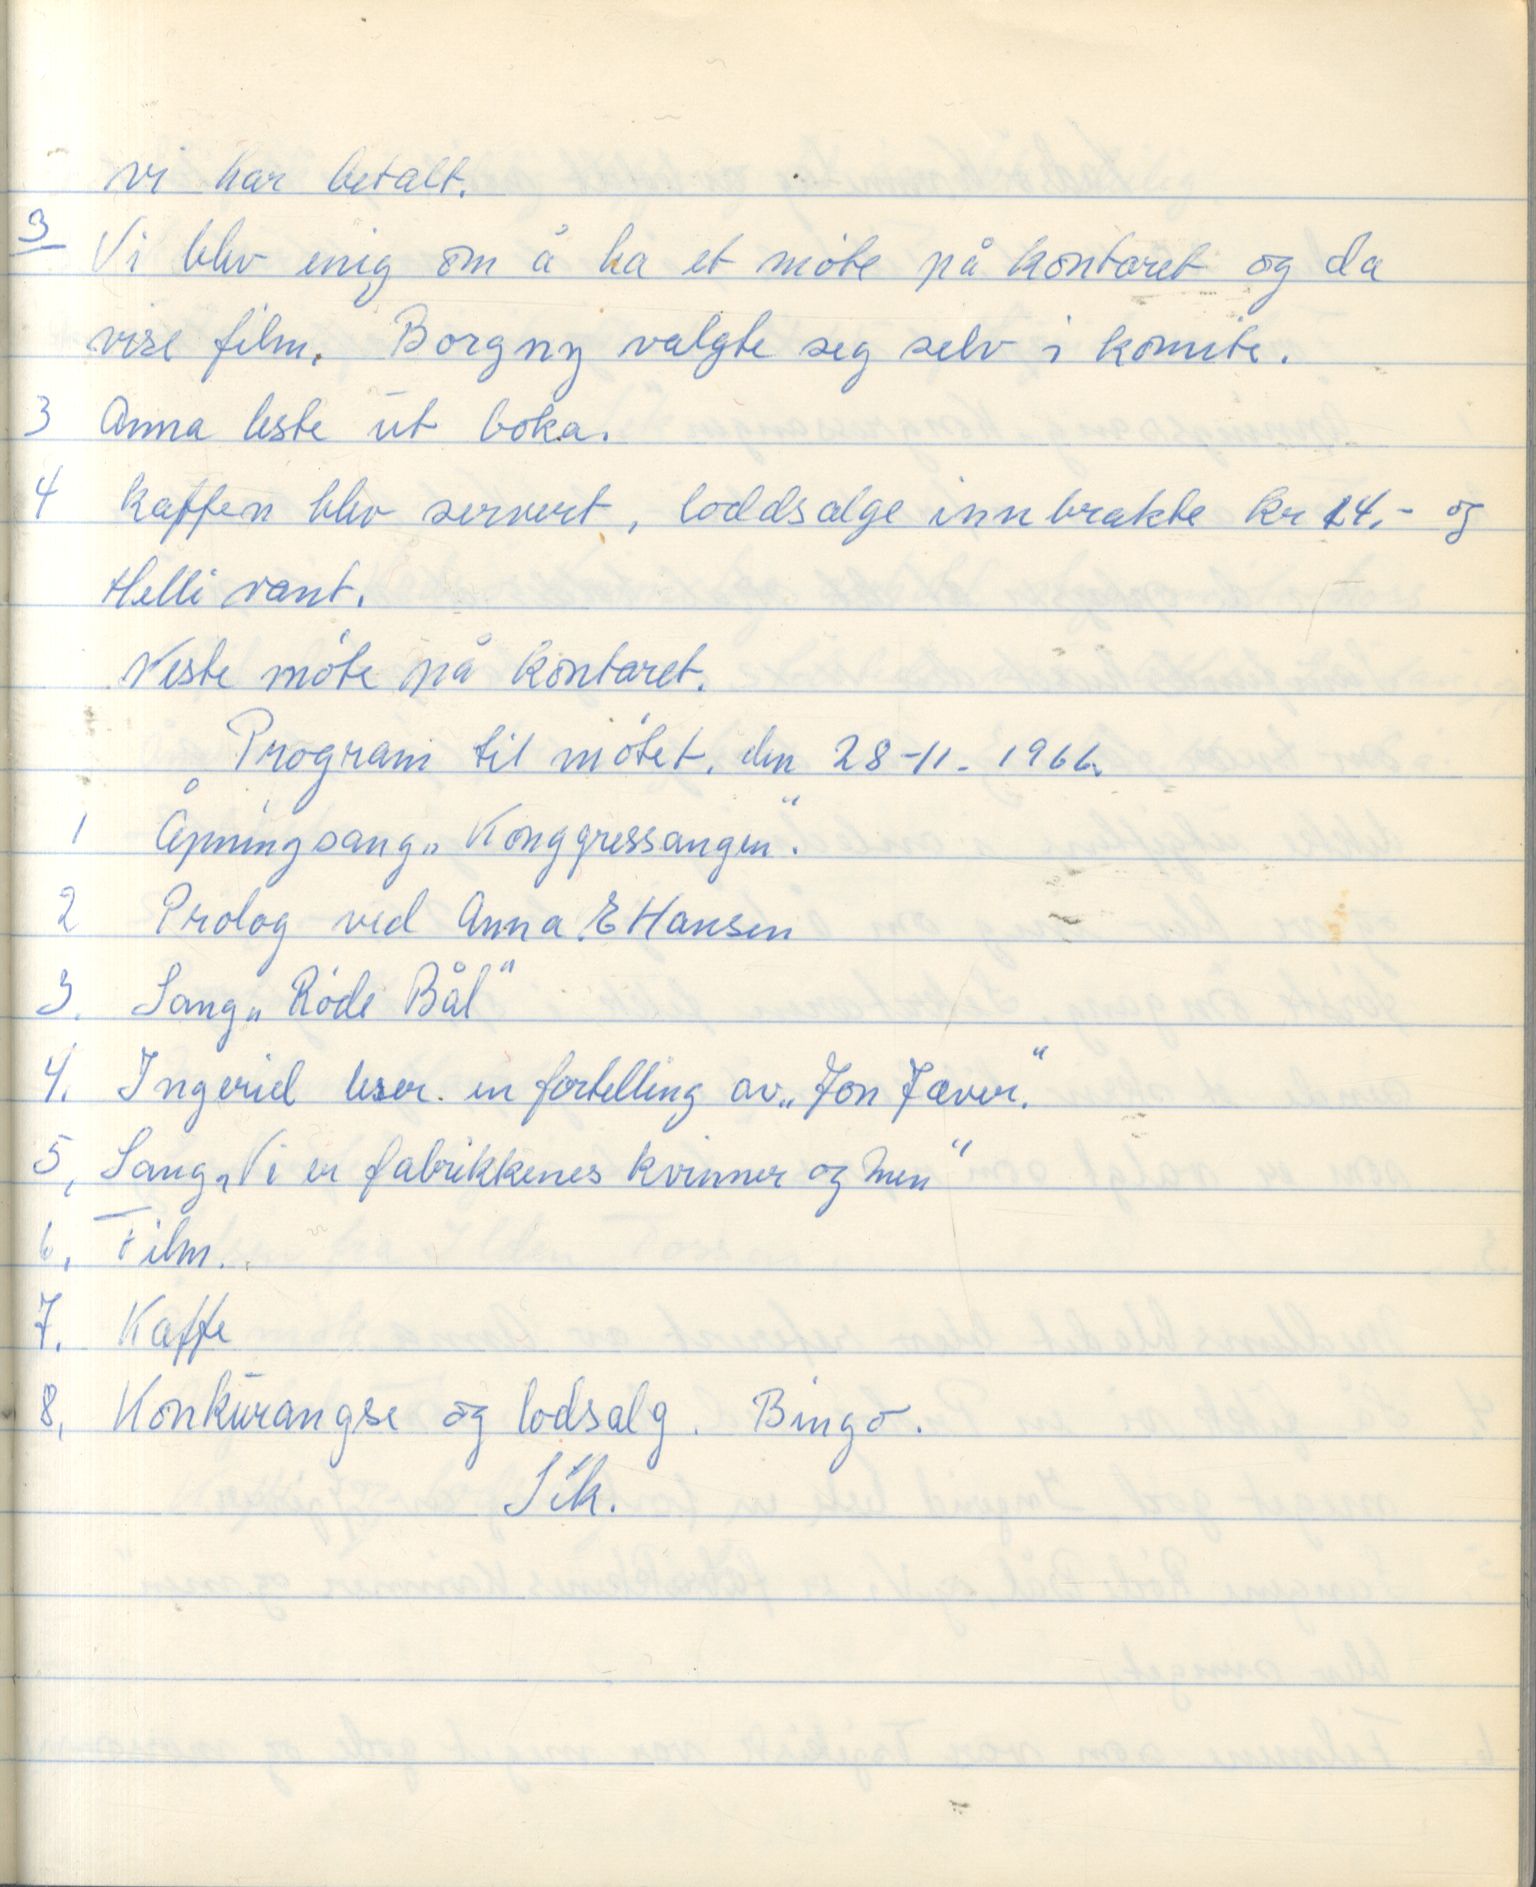 vi har betalt.
3 Vi blev enig om å ha et möte på kontoret og da
vise film. Borgny valgte seg selv i komite.
3 Anna leste ut boka.
4 Kaffen blev servert, loddsalge innbrakte kr 14.- og
Helli vant.
Neste möte på kontoret.
Program til mötet. den 28-11-1966.
1 Åpningsang „Konggressangen“.
2 Prolog ved Anna E Hansen
3. Sang „Röde Bål“
4. Ingerid leser en fortelling av „Jon Jæver.“
5, Sang „Vi er fabrikkenes kvinner og men“
6, Film.
7. Kaffe
8, Konkurangse og lodsalg. Bingo.